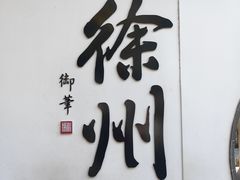 徐州
御筆